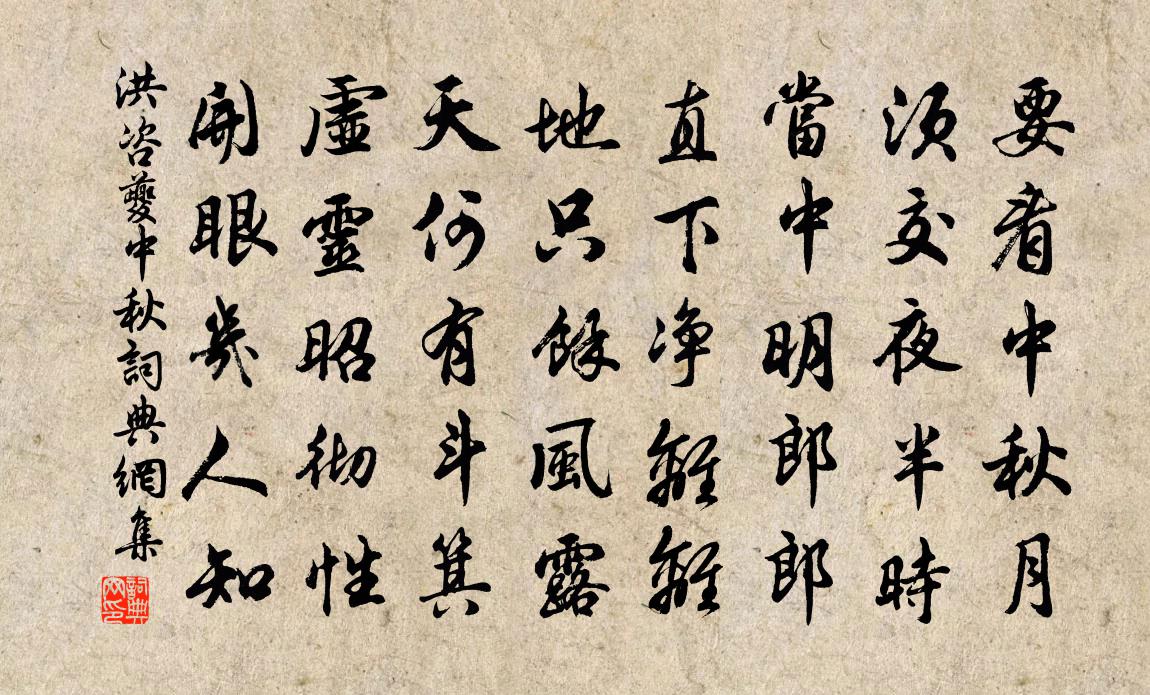 要看中秋月
須交夜半時
當中明郎郎
直下淨離離
地只餘風露
天何有斗箕
虛靈昭彻性
開眼幾人知
洪咨夔中秋詞典網集
詞典网印